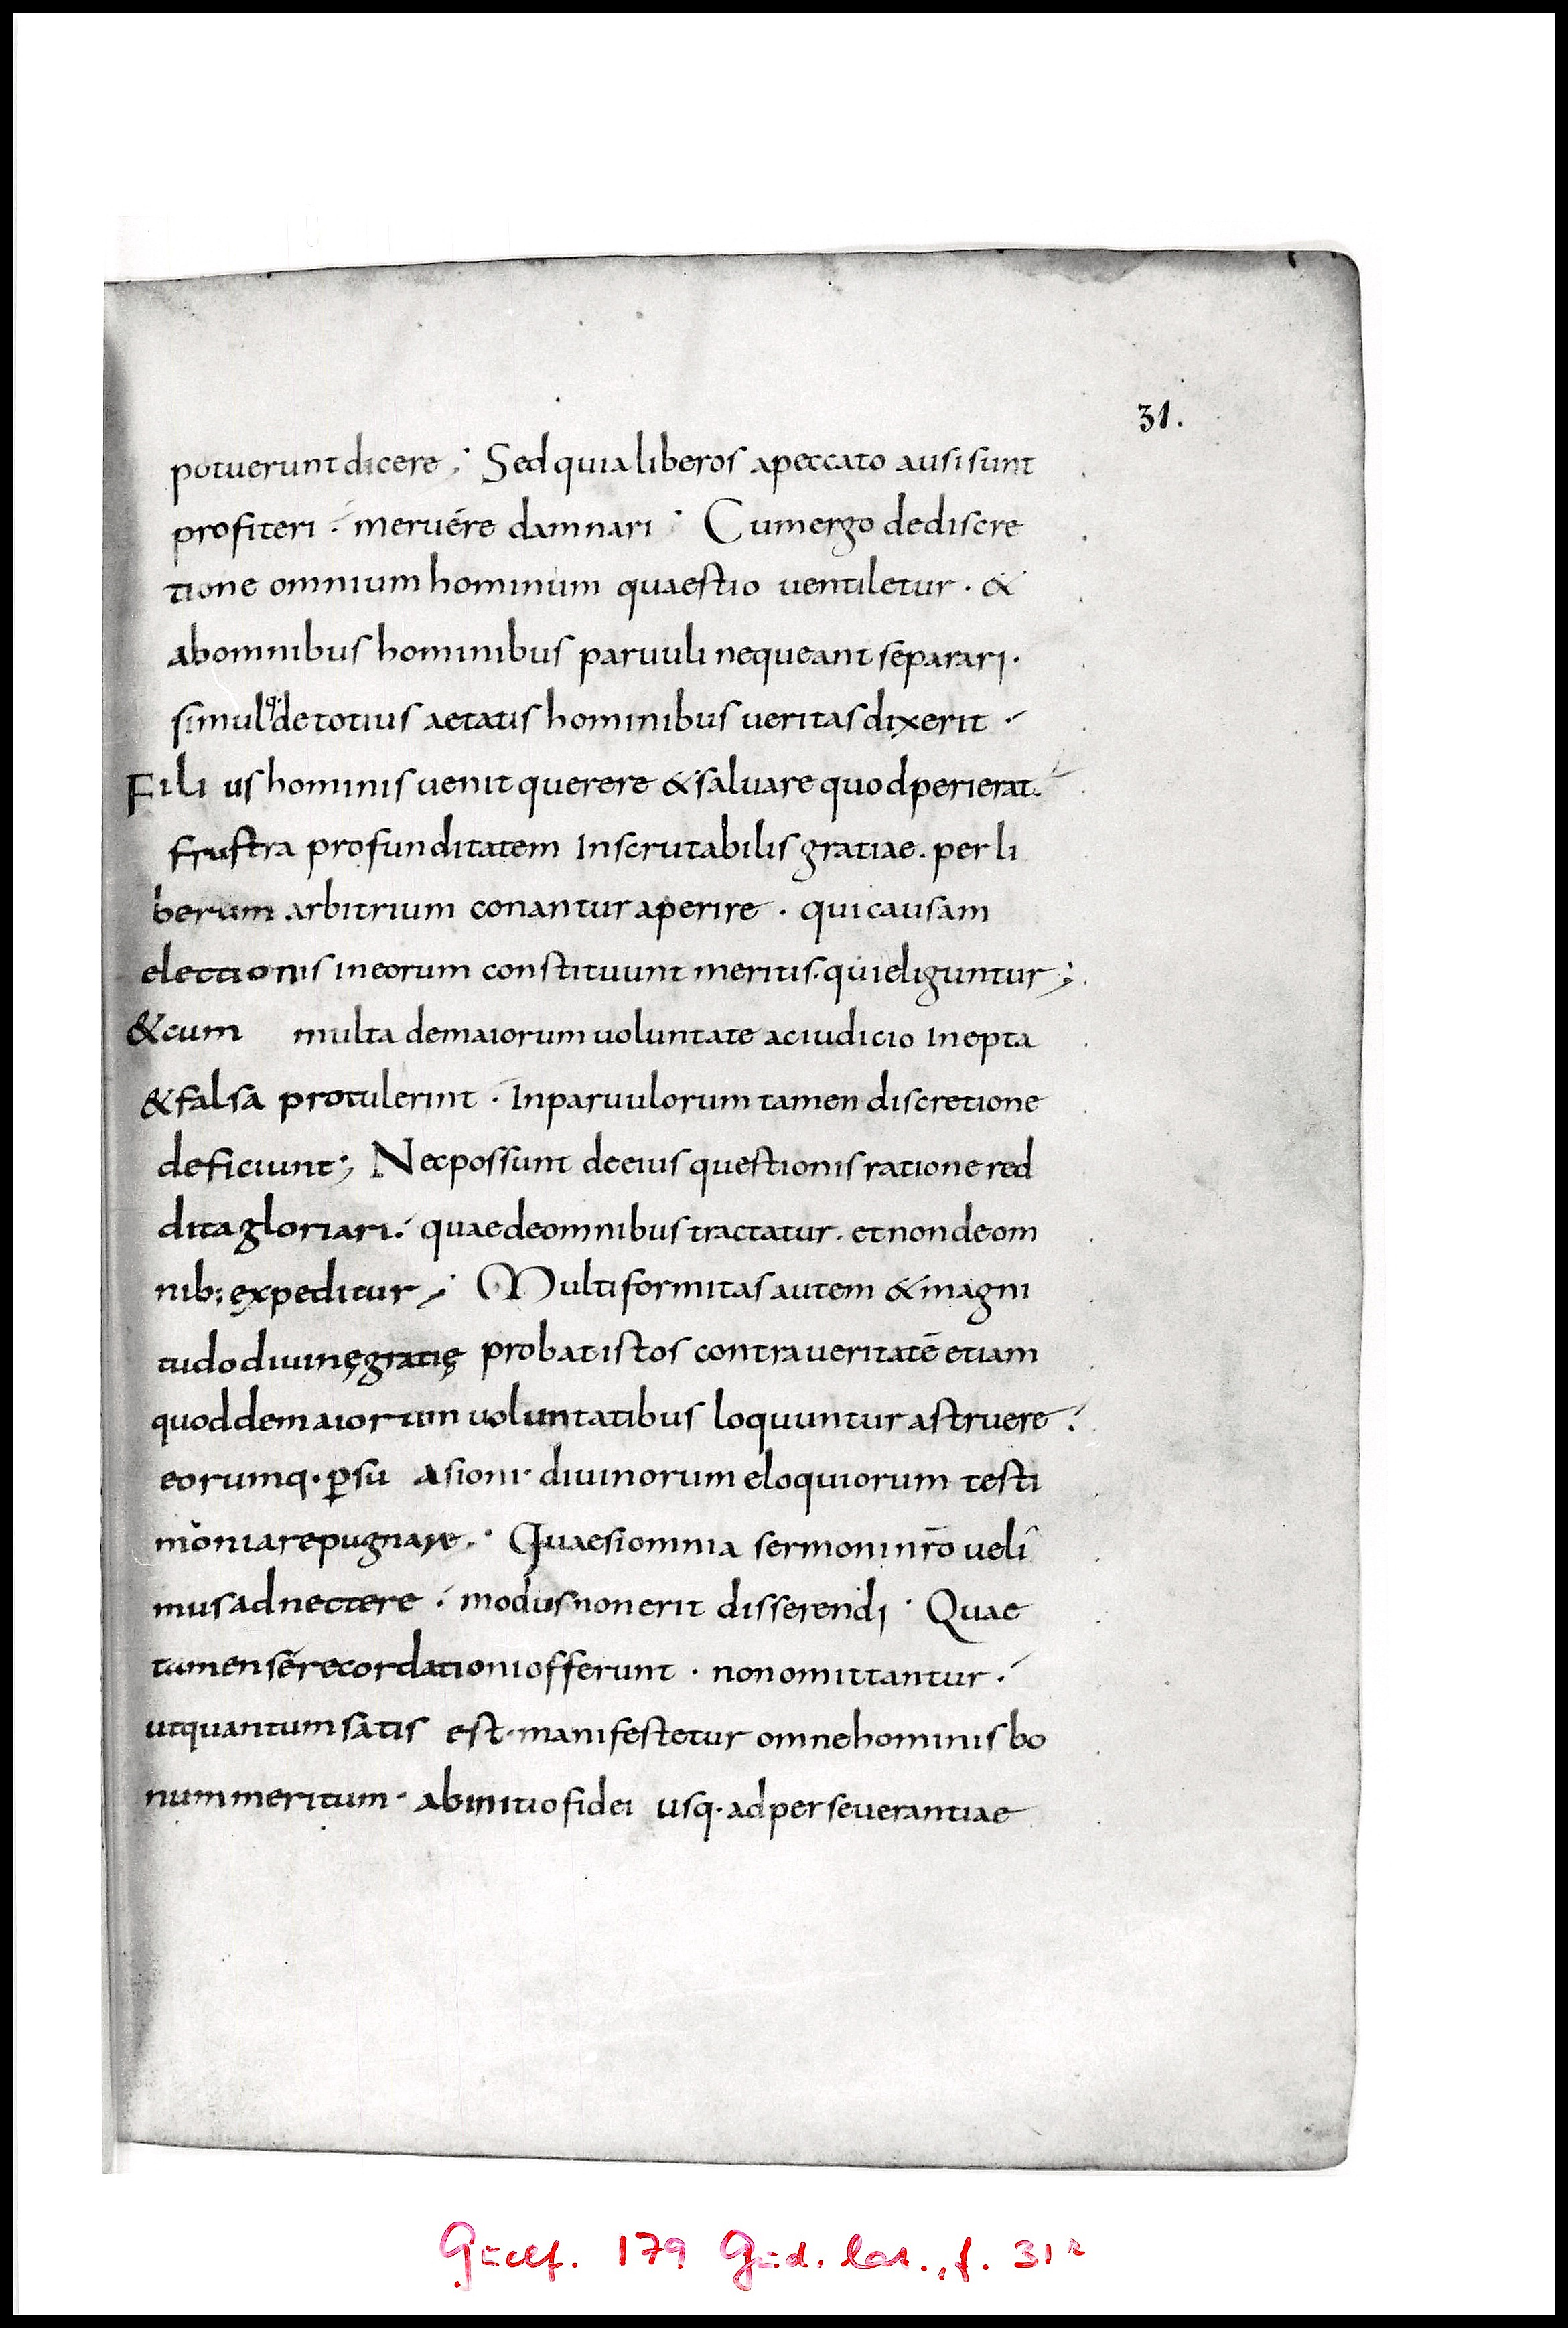 31.
potuerunt dicere; Sed quia liberos apeccato ausi sunt
profiteri. meruére damnari; Cum ergo de discre
tione omnium hominum quaestio ventiletur. &
ab omnibus hominibus paruuli nequeant separari.
simulq; de totius aetatis hominibus ueritas dixerit.
Filius hominis uenit querere & saluare quod perierat.
frustra profunditatem Inscrutabilis gratiae. per li
berum arbitrium conantur aperire. qui causam
electionis in eorum constituunt meritis. qui eliguntur;
& cum multa de maiorum uoluntate ac iudicio Inepta
& falsa protulerint. In paruulorum tamen discretione
deficiunt; Nec possunt de eius questionis ratione red
dita gloriari. quae de omnibus tractatur. et non de om
nib; expeditur; Multiformitas autem & magni
tudo diuinę gratię probat istos contra ueritatē etiam
quod de maiorum uoluntatibus loquuntur astruere.
eorumq. ꝑsuasioni. diuinorum eloquiorum testi
monia repugnare. Quae si omnia sermoni nr̄o ueli
mus adnectere. modus non erit disserendi. Quae
tamen se recordationi offerunt. non omittantur.
ut quantum satis est. manifestetur omne hominis bo
num meritum. ab initio fidei usq. ad perseuerantiae
Guelf. 179 Gud. lat., f. 31r